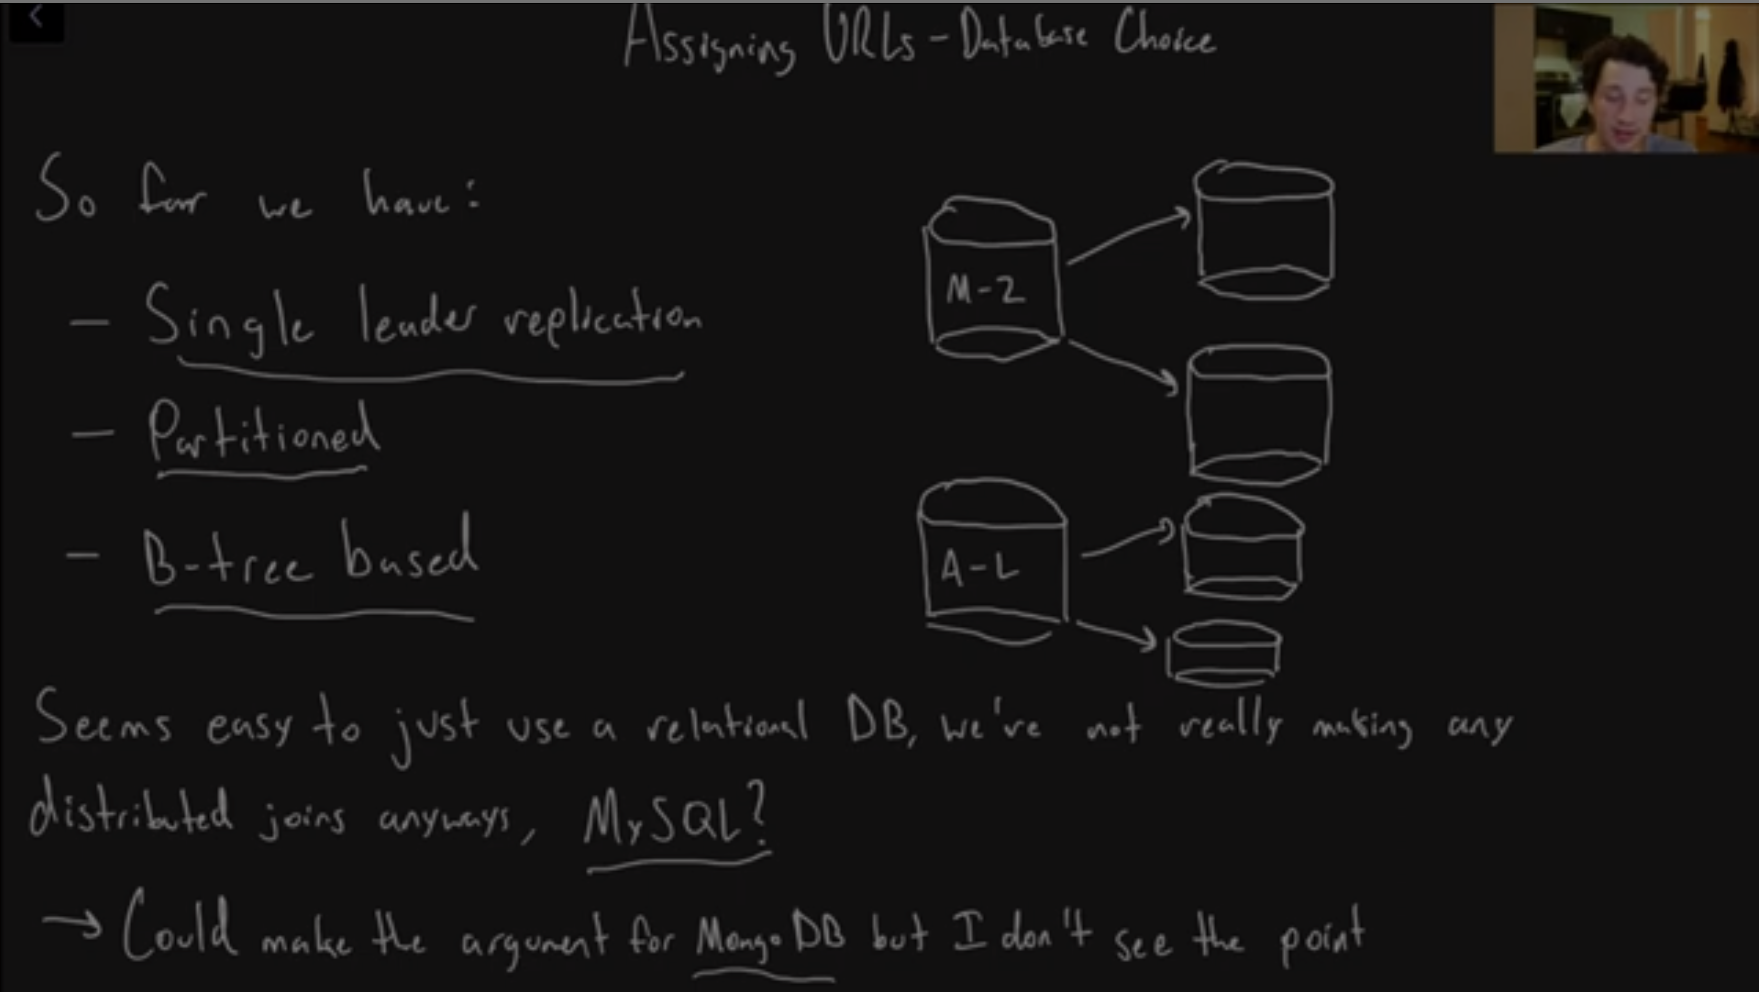 Assigning URLs - Database Choice
So far we have:
- Single leader replication
- Partitioned
- B-tree based
M-Z
A-L
Seems easy to just use a relational DB, we're not really making any
distributed joins anyways, MySQL?
→ Could make the argument for MongoDB but I don't see the point